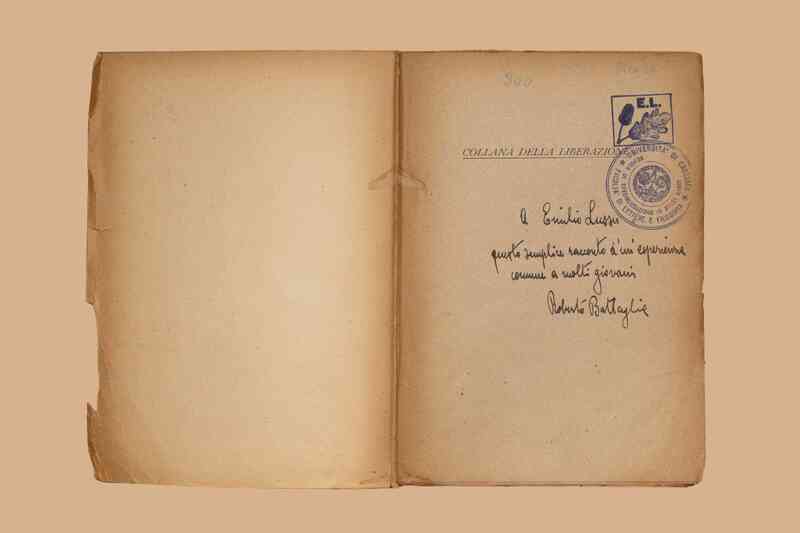 900
E.L.
COLLANA DELLA LIBERAZIONE
UNIVERSITA' DI CAGLIARI
FACOLTA' DI LETTERE E FILOSOFIA
A Emilio Lussu
questo semplice racconto d'un'esperienza
comune a molti giovani
Roberto Battaglia